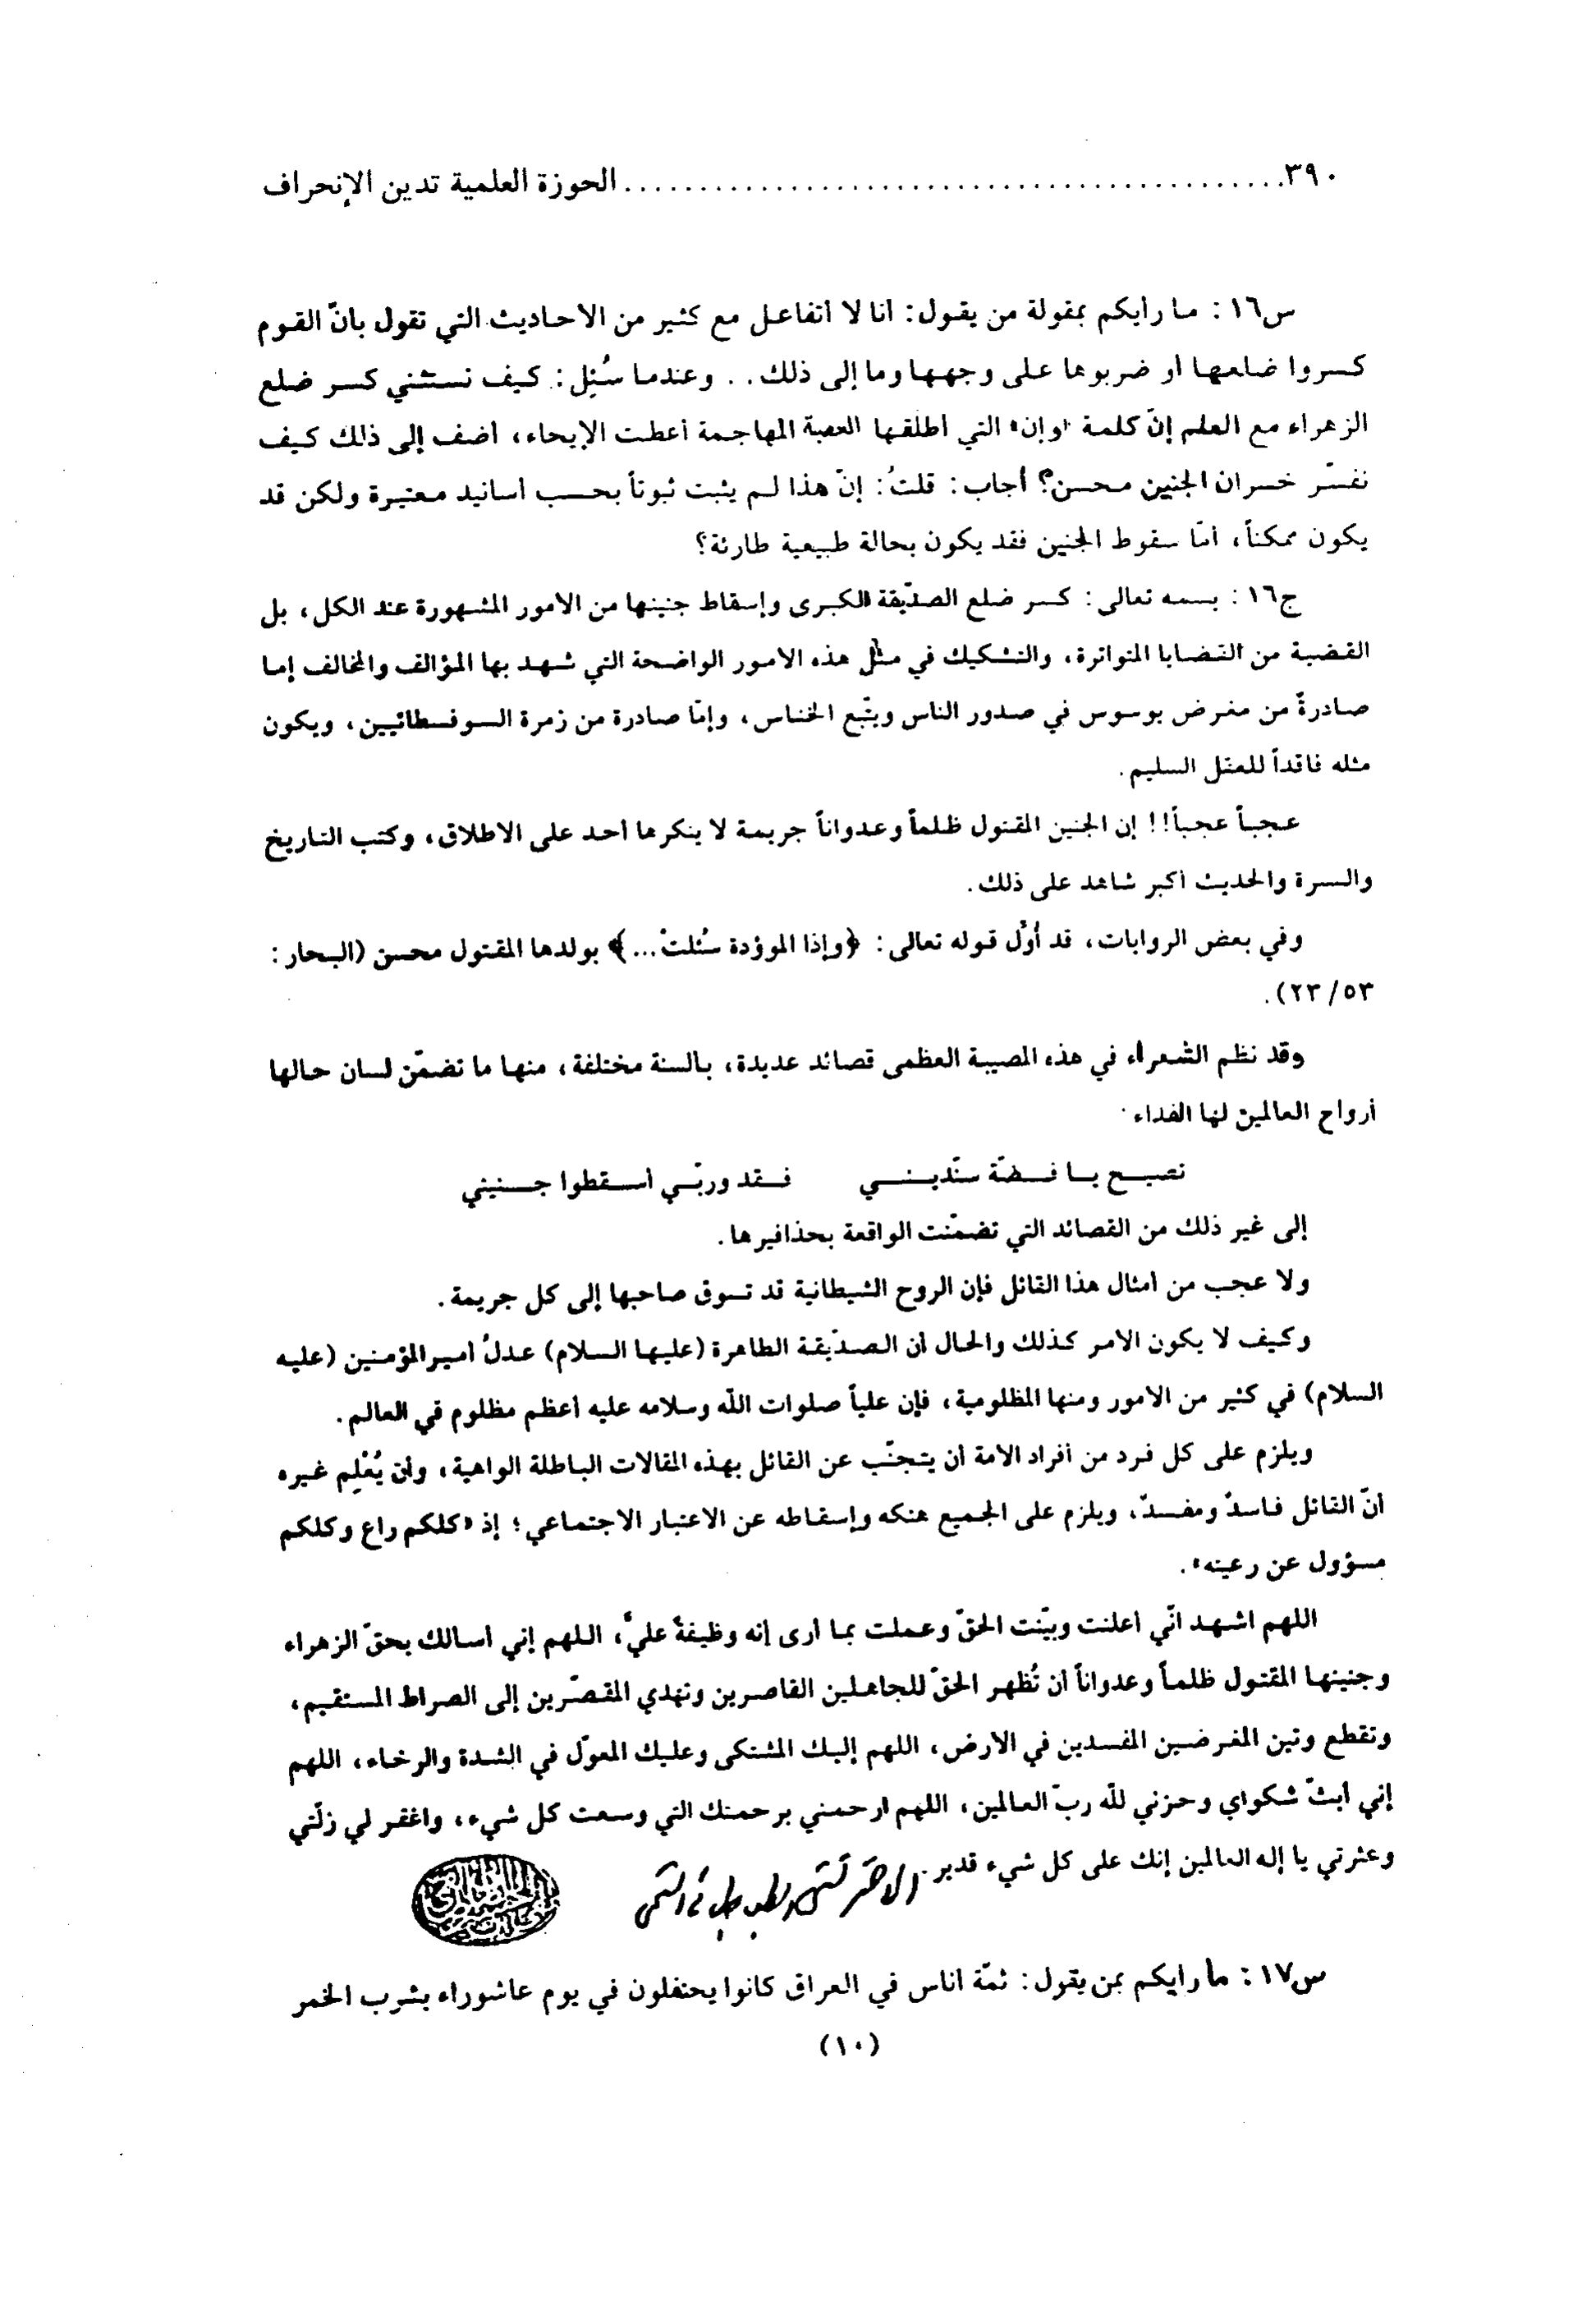 ٣٩٠ ............................................ الحوزة العلمية تدين الإنحراف
س١٦ : ما رايكم بمقولة من يقول: انا لا اتفاعل مع كثير من الاحاديث التي تقول بانّ القوم
كسروا ضلعها او ضربوها على وجهها وما إلى ذلك . . وعندما سُئِل : كيف نستثني كسر ضلع
الزهراء مع العلم إنّ كلمة «وإن» التي اطلقها العصبة المهاجمة أعطت الإيحاء، اضف إلى ذلك كيف
نفسّر خسران الجنين محسن؟ أجاب : قلتُ : إنّ هذا لم يثبت ثبوتاً بحسب اسانيد معتبرة ولكن قد
يكون ممكناً، امّا سقوط الجنين فقد يكون بحالة طبيعية طارئة؟
ج١٦ : بسمه تعالى : كسر ضلع الصدّيقة الكبرى وإسقاط جنينها من الامور المشهورة عند الكل، بل
القضية من القضايا المتواترة، والتشكيك في مثل هذه الامور الواضحة التي شهد بها المؤالف والمخالف إما
صادرةٌ من مغرض يوسوس في صدور الناس ويتّبع الخناس، وإمّا صادرة من زمرة السوفسطائيين، ويكون
مثله فاقداً للعقل السليم.
عجباً عجباً!! إن الجنين المقتول ظلماً وعدواناً جريمة لا ينكرها احد على الاطلاق، وكتب التاريخ
والسرة والحديث اكبر شاهد على ذلك.
وفي بعض الروايات، قد أوّل قوله تعالى : ﴿وإذا الموؤدة سُئلتْ ...﴾ بولدها المقتول محسن (البحار :
٢٣/٥٣).
وقد نظم الشعراء في هذه المصيبة العظمى قصائد عديدة، بالسنة مختلفة، منها ما تضمّن لسان حالها
أرواح العالمين لها الفداء
تصيح يا فضّة سنّديني فقد وربّي اسقطوا جنيني
إلى غير ذلك من القصائد التي تضمّنت الواقعة بحذافيرها.
ولا عجب من امثال هذا القائل فإن الروح الشيطانية قد تسوق صاحبها إلى كل جريمة.
وكيف لا يكون الامر كذلك والحال ان الصدّيقة الطاهرة (عليها السلام) عدلُ اميرالمؤمنين (عليه
السلام) في كثير من الامور ومنها المظلومية، فإن علياً صلوات اللّه وسلامه عليه اعظم مظلوم في العالم.
ويلزم على كل فرد من أفراد الامة ان يتجنّب عن القائل بهذه المقالات الباطلة الواهية، وان يُعْلِم غيره
انّ القائل فاسدٌ ومفسدٌ، ويلزم على الجميع هتكه وإسقاطه عن الاعتبار الاجتماعي؛ إذ «كلكم راع وكلكم
مسؤول عن رعيته».
اللهم اشهد انّي اعلنت وبيّنت الحقّ وعملت بما ارى إنه وظيفةٌ عليّ، اللهم إني اسالك بحقّ الزهراء
وجنينها المقتول ظلماً وعدواناً ان تُظهر الحقّ للجاهلين القاصرين وتهدي المقصّرين إلى الصراط المستقيم،
وتقطع وتين المغرضين المفسدين في الارض، اللهم إليك المشتكى وعليك المعوّل في الشدة والرخاء، اللهم
إني ابثّ شكواي وحزني للّه ربّ العالمين، اللهم ارحمني برحمتك التي وسعت كل شيء، واغفر لي زلّتي
وعثرتي يا إله العالمين إنك على كل شيء قدير.
س١٧ : ما رايكم بمن يقول : ثمّة اناس في العراق كانوا يحتفلون في يوم عاشوراء بشرب الخمر
(١٠)